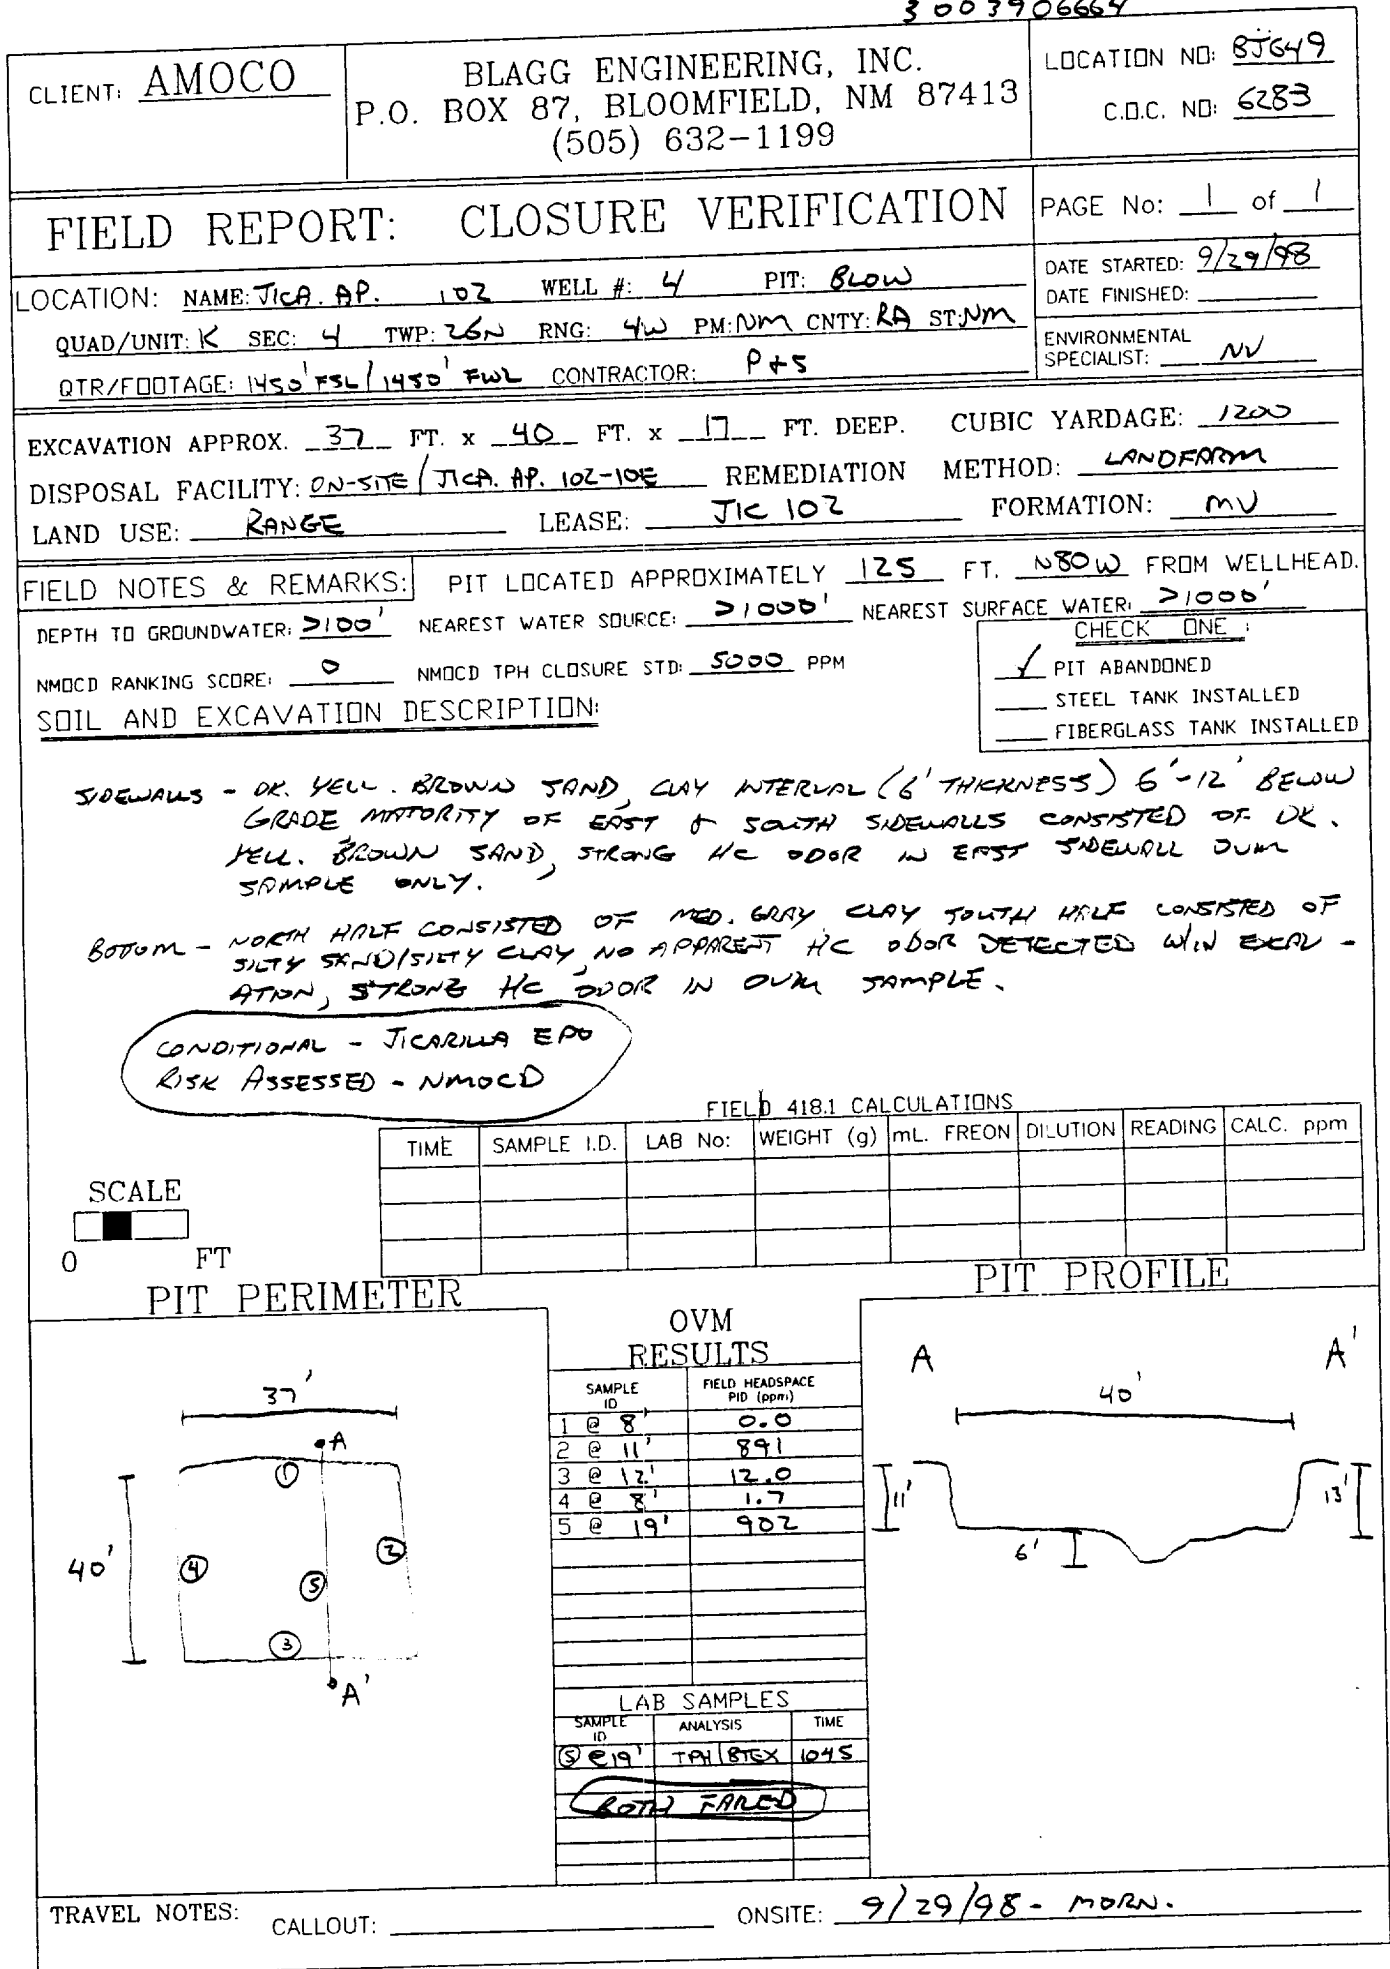 3003906664
CLIENT: AMOCO
BLAGG ENGINEERING, INC.
P.O. BOX 87, BLOOMFIELD, NM 87413
(505) 632-1199
LOCATION NO: BJ649
C.O.C. NO: 6283
FIELD REPORT: CLOSURE VERIFICATION
PAGE No: 1 of 1
LOCATION: NAME: JICA. AP. 102 WELL #: 4 PIT: BLOW
QUAD/UNIT: K SEC: 4 TWP: 26N RNG: 4W PM: NM CNTY: RA ST: NM
QTR/FOOTAGE: 1450' FSL / 1450' FWL CONTRACTOR: P+S
DATE STARTED: 9/29/98
DATE FINISHED:
ENVIRONMENTAL
SPECIALIST: NV
EXCAVATION APPROX. 37 FT. x 40 FT. x 17 FT. DEEP. CUBIC YARDAGE: 1200
DISPOSAL FACILITY: ON-SITE / JICA. AP. 102-10E REMEDIATION METHOD: LANDFARM
LAND USE: RANGE LEASE: JIC 102 FORMATION: MV
FIELD NOTES & REMARKS: PIT LOCATED APPROXIMATELY 125 FT. N80W FROM WELLHEAD.
DEPTH TO GROUNDWATER: >100' NEAREST WATER SOURCE: >1000' NEAREST SURFACE WATER: >1000'
NMOCD RANKING SCORE: 0 NMOCD TPH CLOSURE STD: 5000 PPM
CHECK ONE :
✓ PIT ABANDONED
STEEL TANK INSTALLED
FIBERGLASS TANK INSTALLED
SOIL AND EXCAVATION DESCRIPTION:
SIDEWALLS - DK. YELL. BROWN SAND, CLAY INTERVAL (6' THICKNESS) 6'-12' BELOW
GRADE MAJORITY OF EAST & SOUTH SIDEWALLS CONSISTED OF DK.
YELL. BROWN SAND, STRONG HC ODOR IN EAST SIDEWALL OVM
SAMPLE ONLY.
BOTTOM - NORTH HALF CONSISTED OF MED. GRAY CLAY SOUTH HALF CONSISTED OF
SILTY SAND/SILTY CLAY, NO APPARENT HC ODOR DETECTED W/IN EXCAV-
ATION, STRONG HC ODOR IN OVM SAMPLE.
CONDITIONAL - JICARILLA EPO
RISK ASSESSED - NMOCD
FIELD 418.1 CALCULATIONS
TIME SAMPLE I.D. LAB No: WEIGHT (g) mL. FREON DILUTION READING CALC. ppm
SCALE
0 FT
PIT PERIMETER
37'
A
40'
1
2
3
4
5
A'
OVM
RESULTS
SAMPLE ID FIELD HEADSPACE PID (ppm)
1 @ 8' 0.0
2 @ 11' 891
3 @ 12' 12.0
4 @ 8' 1.7
5 @ 19' 902
LAB SAMPLES
SAMPLE ID ANALYSIS TIME
5 @ 19' TPH/BTEX 1045
BOTH FAILED
PIT PROFILE
A A'
40'
11' 13'
6'
TRAVEL NOTES: CALLOUT: ONSITE: 9/29/98 - MORN.